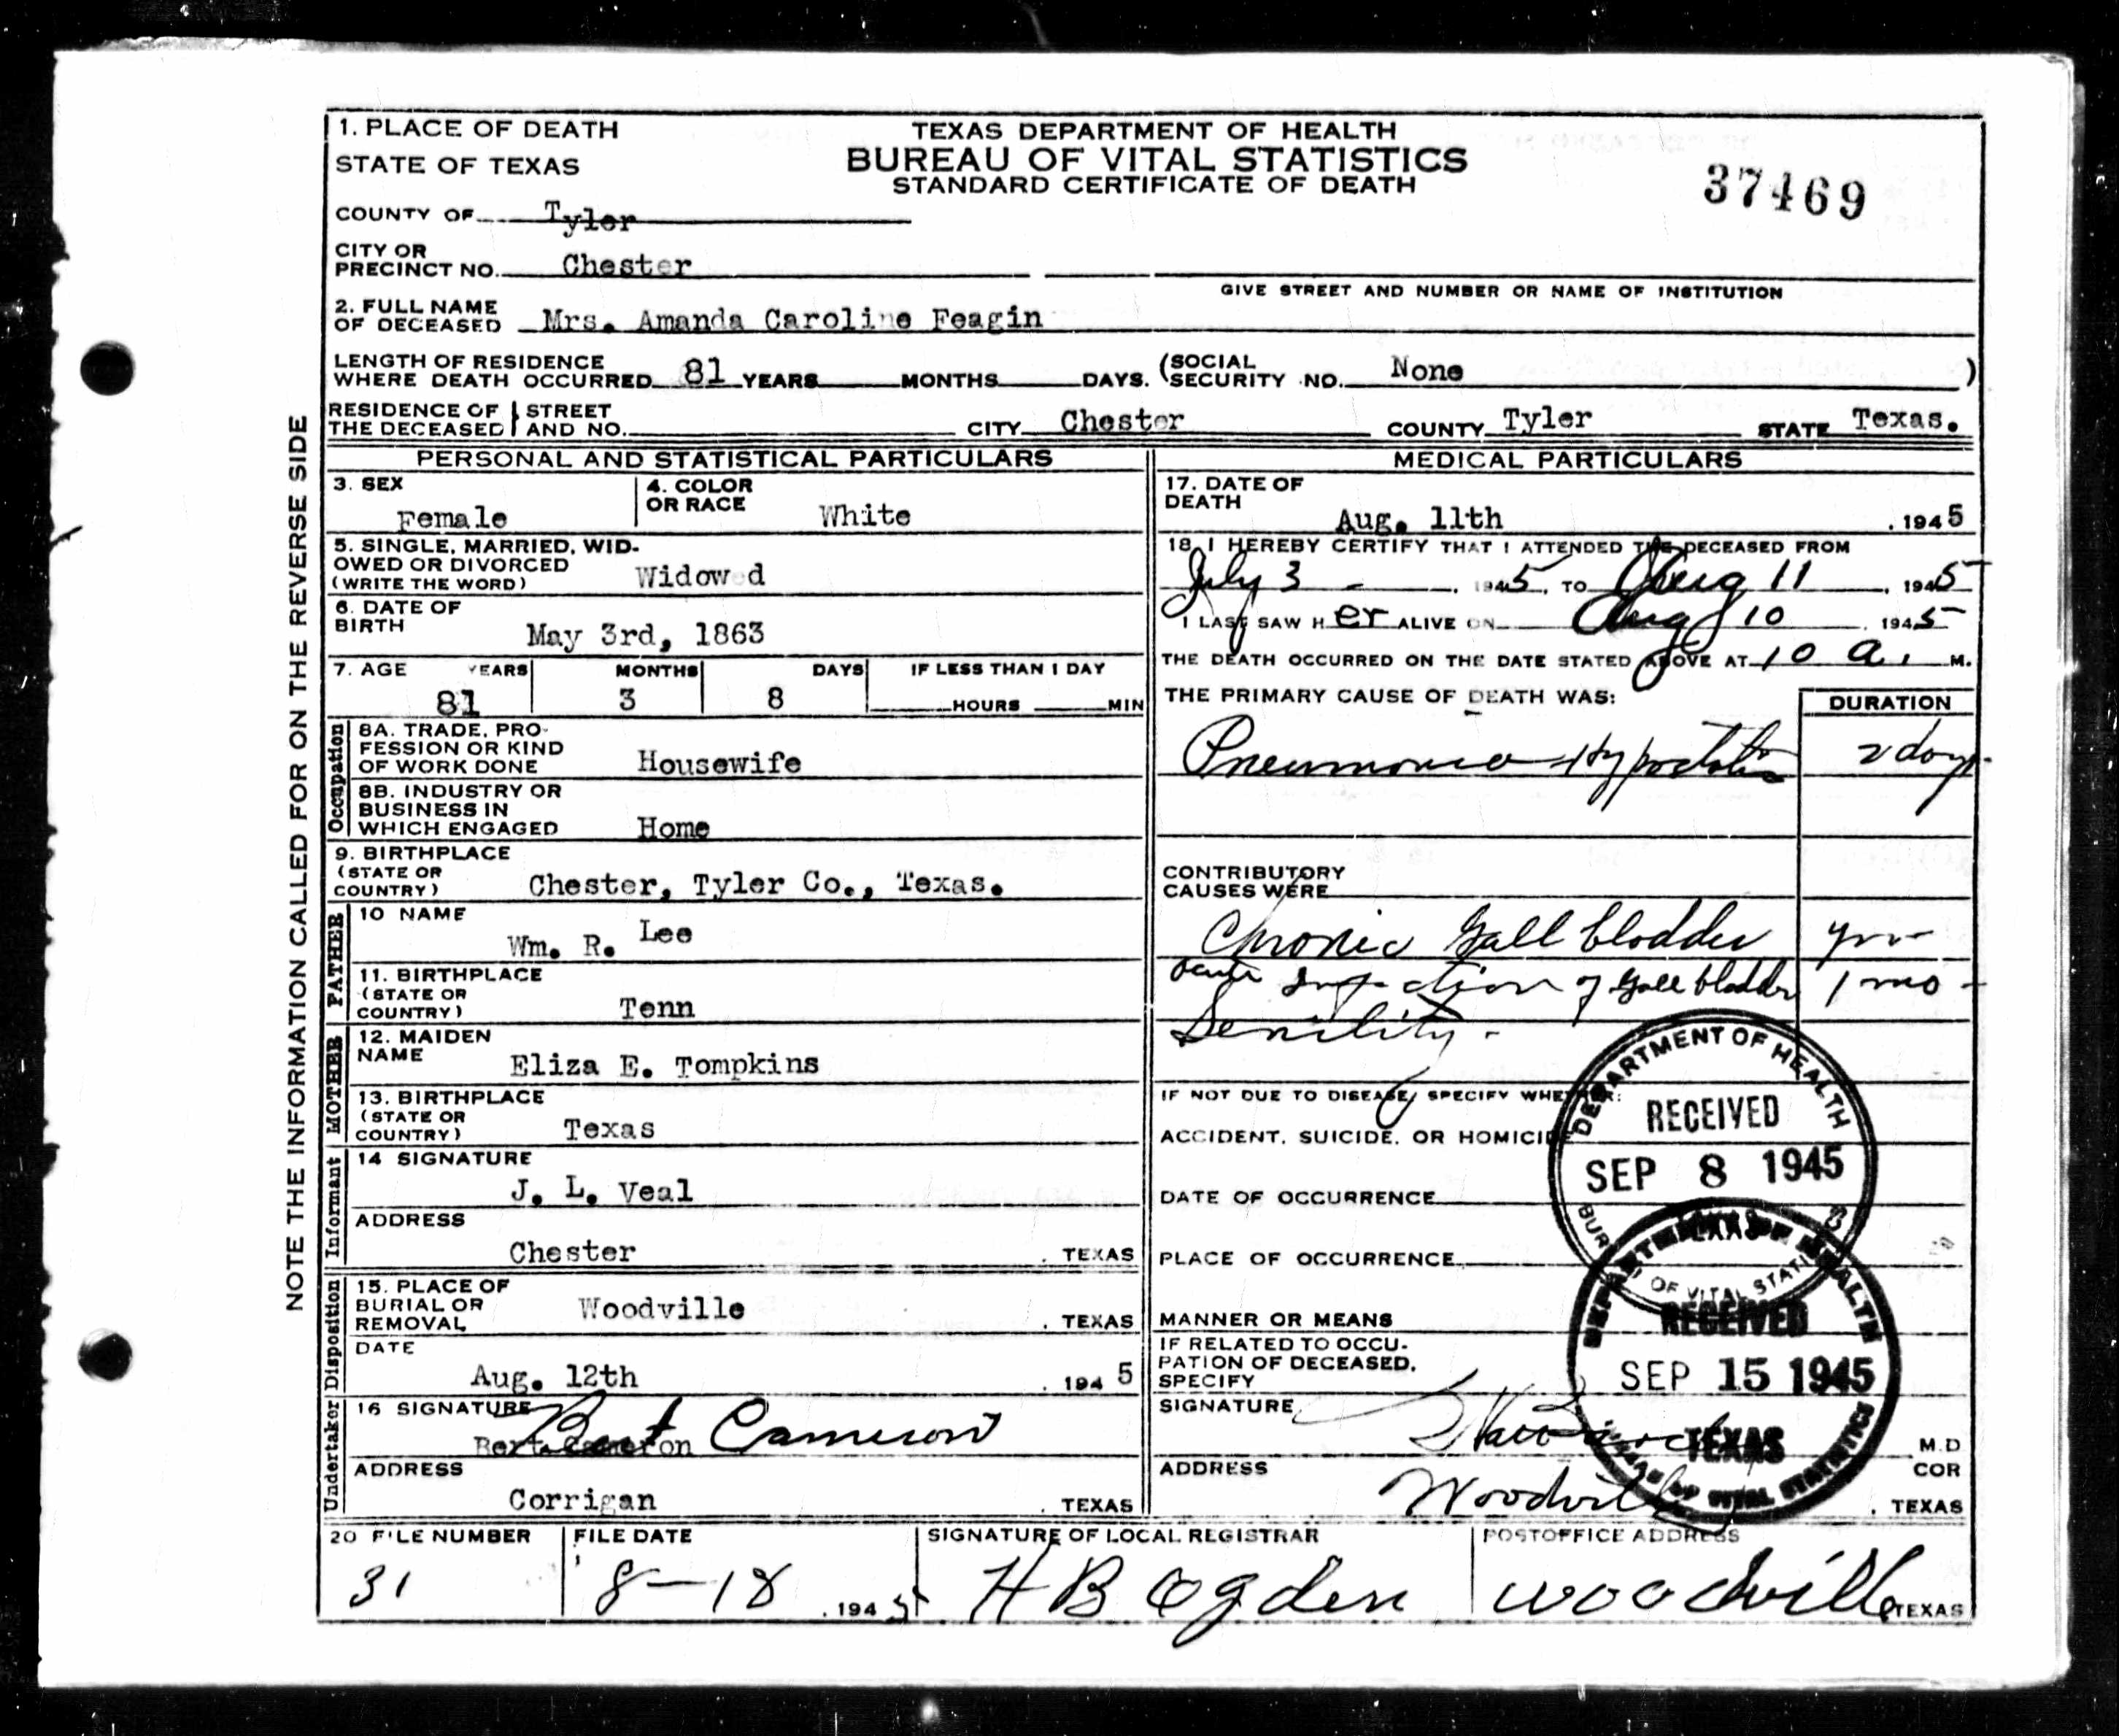 1. PLACE OF DEATH
STATE OF TEXAS
TEXAS DEPARTMENT OF HEALTH
BUREAU OF VITAL STATISTICS
STANDARD CERTIFICATE OF DEATH
37469
COUNTY OF Tyler
CITY OR
PRECINCT NO. Chester
GIVE STREET AND NUMBER OR NAME OF INSTITUTION
2. FULL NAME
OF DECEASED Mrs. Amanda Caroline Feagin
LENGTH OF RESIDENCE
WHERE DEATH OCCURRED 81 YEARS MONTHS DAYS. (SOCIAL SECURITY NO. None )
RESIDENCE OF THE DECEASED STREET AND NO. CITY Chester COUNTY Tyler STATE Texas.
NOTE THE INFORMATION CALLED FOR ON THE REVERSE SIDE
PERSONAL AND STATISTICAL PARTICULARS
3. SEX Female
4. COLOR OR RACE White
5. SINGLE, MARRIED, WID-
OWED OR DIVORCED
(WRITE THE WORD) Widowed
6. DATE OF
BIRTH May 3rd, 1863
7. AGE YEARS MONTHS DAYS IF LESS THAN 1 DAY
81 3 8 HOURS MIN
Occupation
8A. TRADE, PRO-
FESSION OR KIND
OF WORK DONE Housewife
8B. INDUSTRY OR
BUSINESS IN
WHICH ENGAGED Home
9. BIRTHPLACE
(STATE OR
COUNTRY) Chester, Tyler Co., Texas.
FATHER
10 NAME Wm. R. Lee
11. BIRTHPLACE
(STATE OR
COUNTRY) Tenn
MOTHER
12. MAIDEN
NAME Eliza E. Tompkins
13. BIRTHPLACE
(STATE OR
COUNTRY) Texas
Informant
14 SIGNATURE
J. L. Veal
ADDRESS
Chester , TEXAS
Disposition
15. PLACE OF
BURIAL OR
REMOVAL Woodville , TEXAS
DATE
Aug. 12th , 1945
Undertaker
16 SIGNATURE
Bert Cameron
Bert Cameron
ADDRESS
Corrigan , TEXAS
MEDICAL PARTICULARS
17. DATE OF
DEATH Aug. 11th , 1945
18. I HEREBY CERTIFY THAT I ATTENDED THE DECEASED FROM
July 3 - , 1945, TO Aug 11 , 1945
I LAST SAW HER ALIVE ON Aug 10 , 1945
THE DEATH OCCURRED ON THE DATE STATED ABOVE AT 10 a. M.
THE PRIMARY CAUSE OF DEATH WAS: DURATION
Pneumonia Hypostatic 2 days
CONTRIBUTORY
CAUSES WERE
Chronic Gall bladder yrs
acute infection of gall bladder 1 mo -
Senility -
IF NOT DUE TO DISEASE, SPECIFY WHETHER:
ACCIDENT, SUICIDE, OR HOMICIDE
DATE OF OCCURRENCE
PLACE OF OCCURRENCE
MANNER OR MEANS
IF RELATED TO OCCU-
PATION OF DECEASED,
SPECIFY
SIGNATURE M.D
ADDRESS Woodville COR
, TEXAS
DEPARTMENT OF HEALTH
RECEIVED
SEP 8 1945
TEXAS
BUREAU OF VITAL STATISTICS
DEPARTMENT OF HEALTH
RECEIVED
SEP 15 1945
TEXAS
BUREAU OF VITAL STATISTICS
20 FILE NUMBER FILE DATE SIGNATURE OF LOCAL REGISTRAR POSTOFFICE ADDRESS
31 8-18 , 1945 H B Ogden Woodville TEXAS